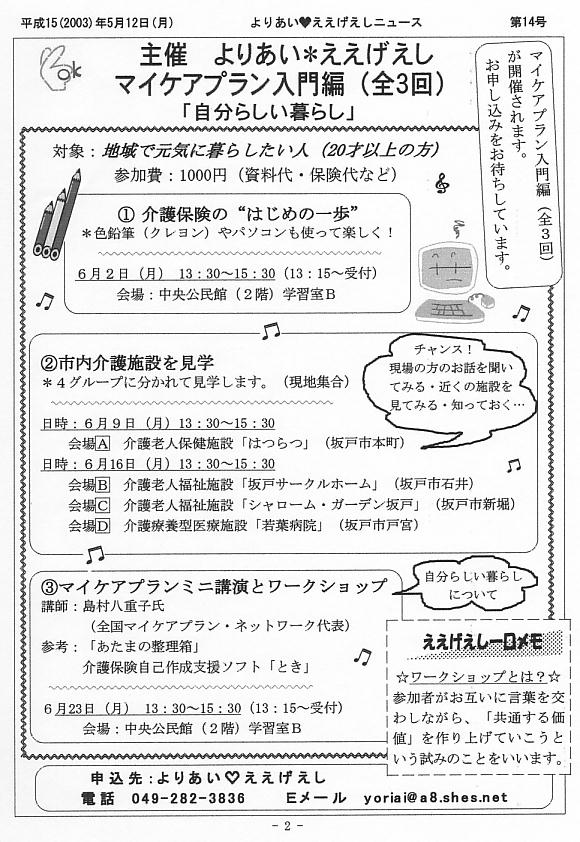 平成15(2003)年5月12日(月)　よりあい♥ええげえしニュース　第14号
ok
主催　よりあい＊ええげえし
マイケアプラン入門編（全3回）
「自分らしい暮らし」
マイケアプラン入門編（全３回）
が開催されます。
お申し込みをお待ちしています。
対象：地域で元気に暮らしたい人（20才以上の方）
参加費：1000円（資料代・保険代など）
① 介護保険の“はじめの一歩”
＊色鉛筆（クレヨン）やパソコンも使って楽しく！
６月２日（月） 13：30～15：30（13：15～受付）
会場：中央公民館（２階）学習室Ｂ
②市内介護施設を見学
＊４グループに分かれて見学します。（現地集合）
チャンス！
現場の方のお話を聞い
てみる・近くの施設を
見てみる・知っておく…
日時：６月９日（月）13：30～15：30
会場A　介護老人保健施設「はつらつ」（坂戸市本町）
日時：６月16日（月）13：30～15：30
会場B　介護老人福祉施設「坂戸サークルホーム」（坂戸市石井）
会場C　介護老人福祉施設「シャローム・ガーデン坂戸」（坂戸市新堀）
会場D　介護療養型医療施設「若葉病院」（坂戸市戸宮）
③マイケアプランミニ講演とワークショップ
自分らしい暮らし
について
講師：島村八重子氏
（全国マイケアプラン・ネットワーク代表）
参考：「あたまの整理箱」
介護保険自己作成支援ソフト「とき」
６月23日（月） 13：30～15：30（13：15～受付）
会場：中央公民館（２階）学習室Ｂ
ええげえし一口メモ
☆ワークショップとは？☆
参加者がお互いに言葉を交
わしながら、「共通する価
値」を作り上げていこうと
いう試みのことをいいます。
申込先：よりあい♡ええげえし
電話　049-282-3836　Ｅメール　yoriai@a8.shes.net
- 2 -